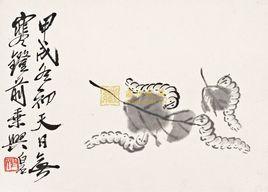 甲戌冬初天日無
寒鐙前乘興白